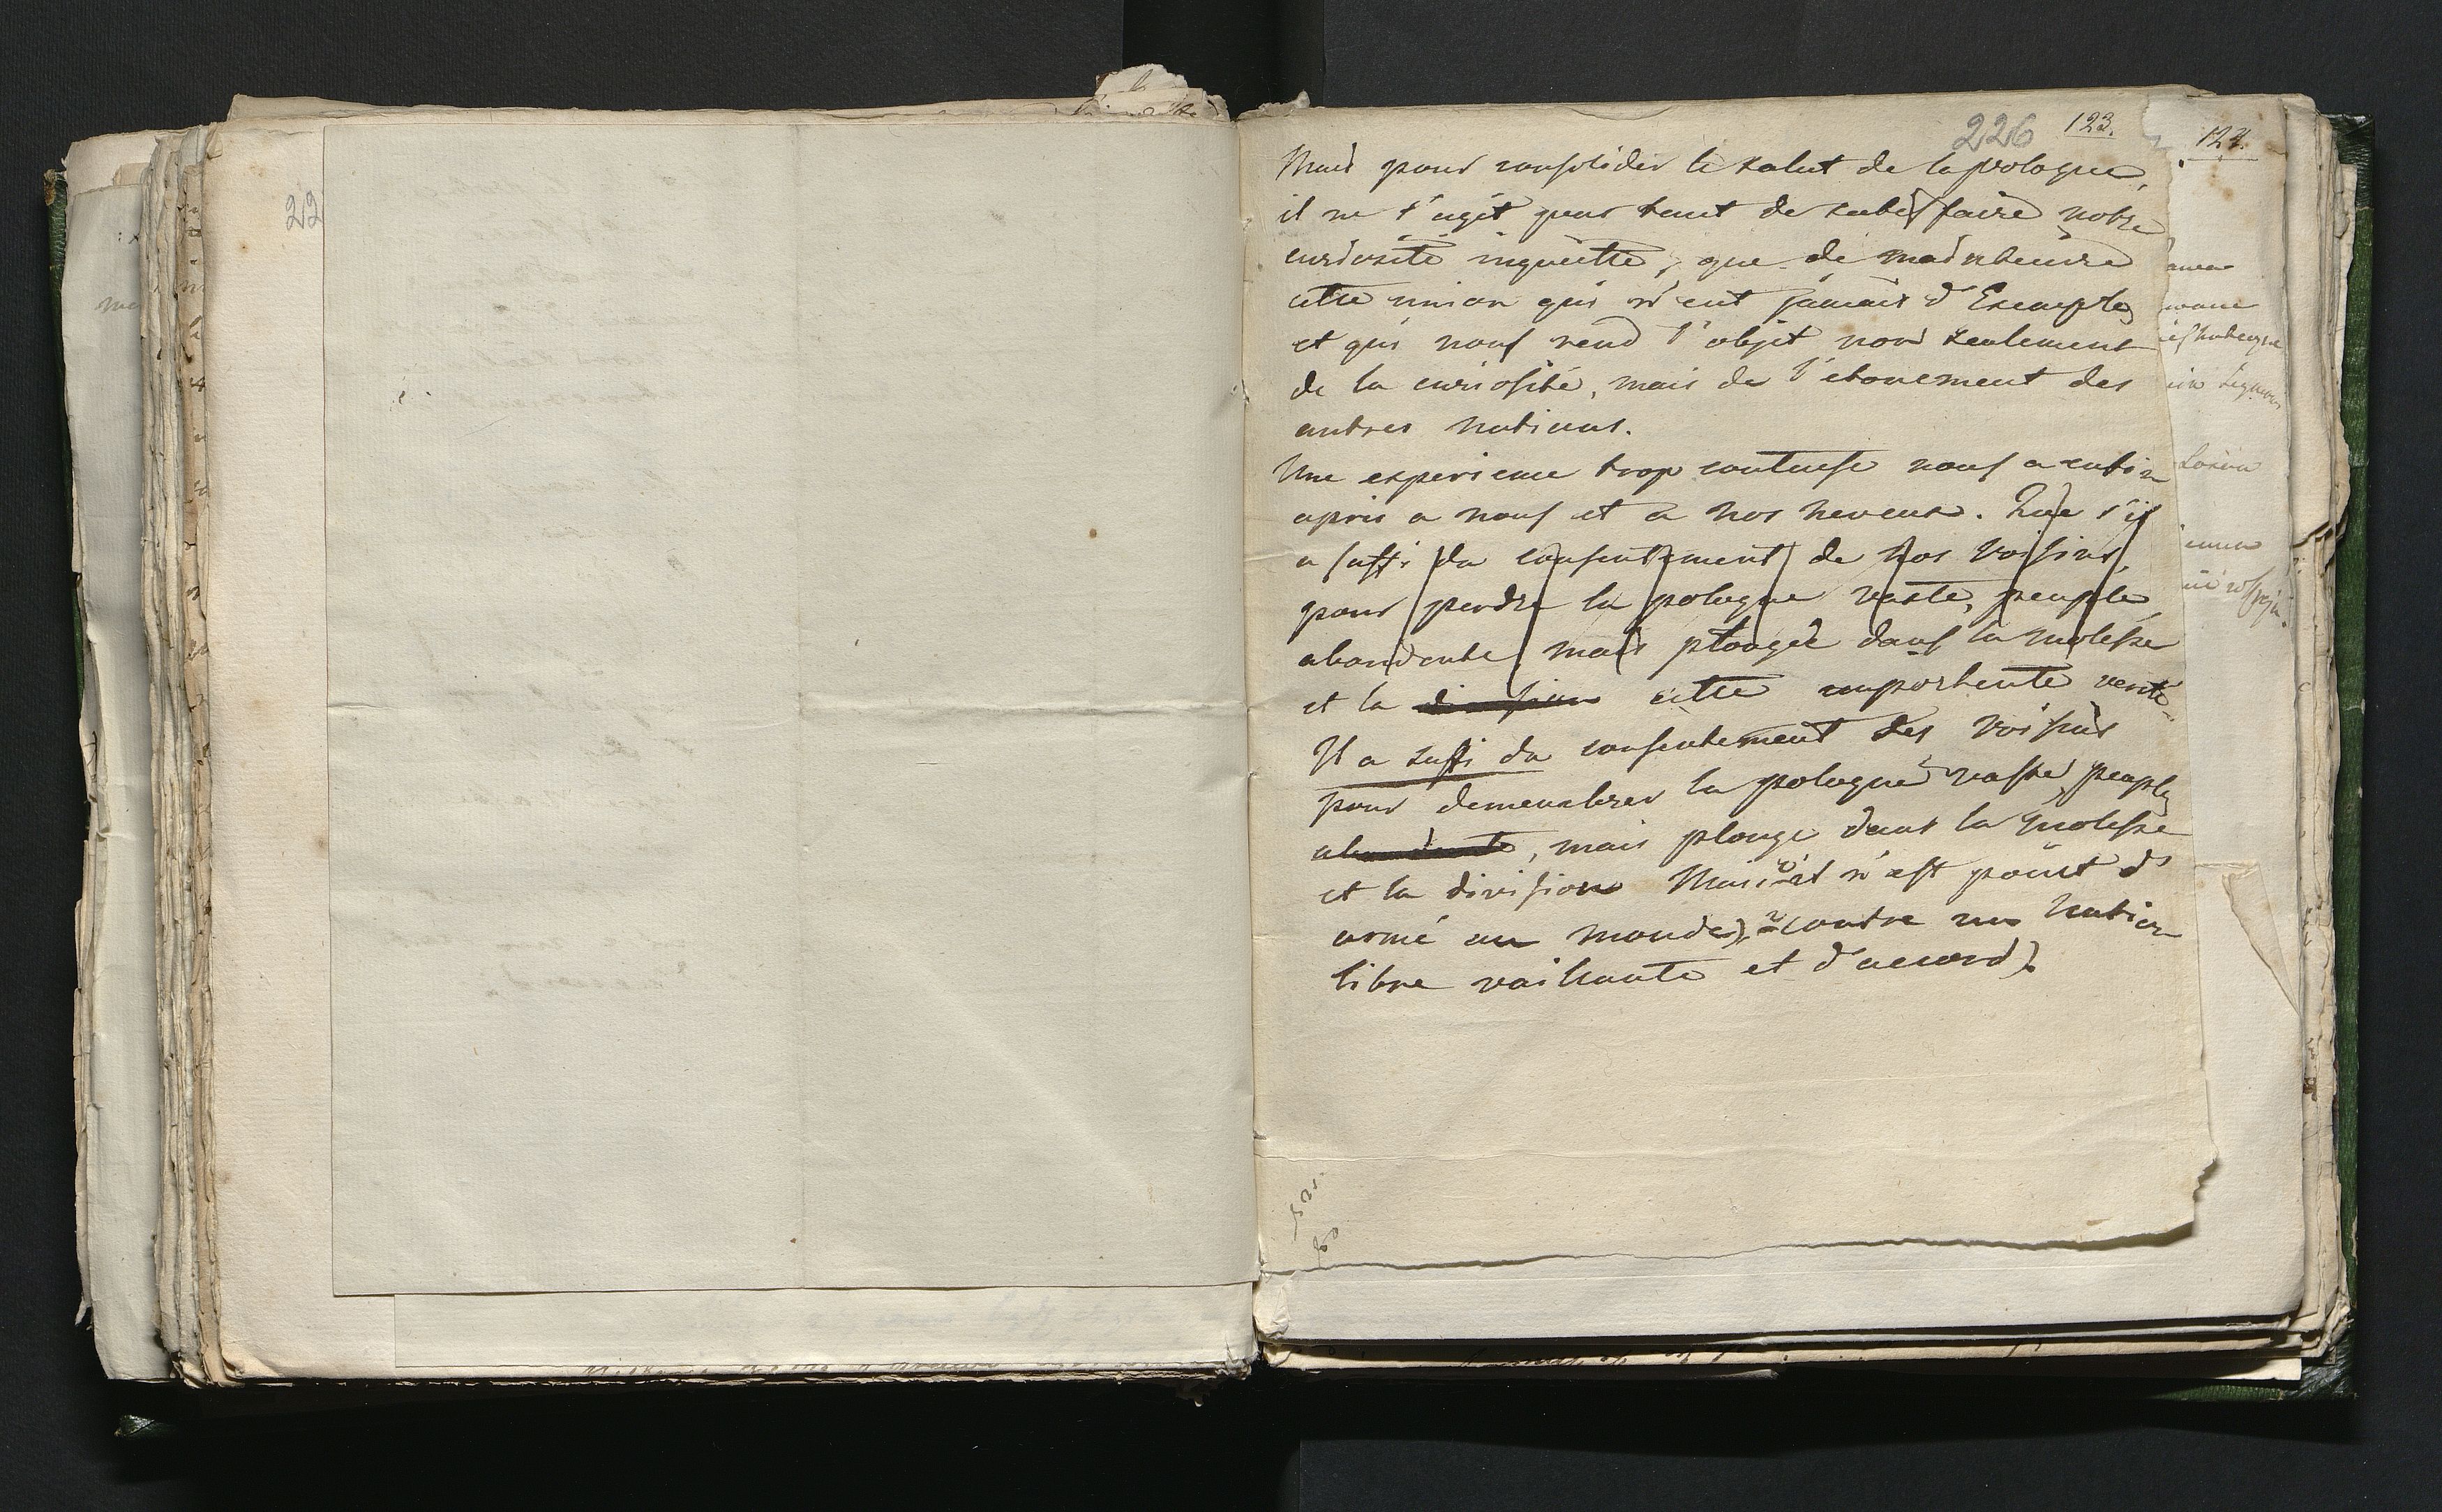 22
226 123.
Mais pour consolider le salut de la pologne,
il ne s'agit pas tant de satisfaire notre
curiosité inquiette, que de maintenire
cette union qui n'eut jamais d'Exemple
et qui nous rend l'objet non seulement
de la curiosité, mais de l'etonement des
autres nations.
Une experience trop couteuse nous a enfin
apris a nous et a nos neveux. Que s'il
a suffi du consentement de nos voisins,
pour perdre la pologne vaste, peuplé,
abondente mais plongée dans la molesse
et la division cette importente verité
Il a suffi du consentement des voisins
pour demembrer la pologne vaste, peuplé
abondente, mais plongé dans la molesse
et la division Mais il n'est point d
armé au monde, contre une nation
libre vaillante et d'accord.
124.